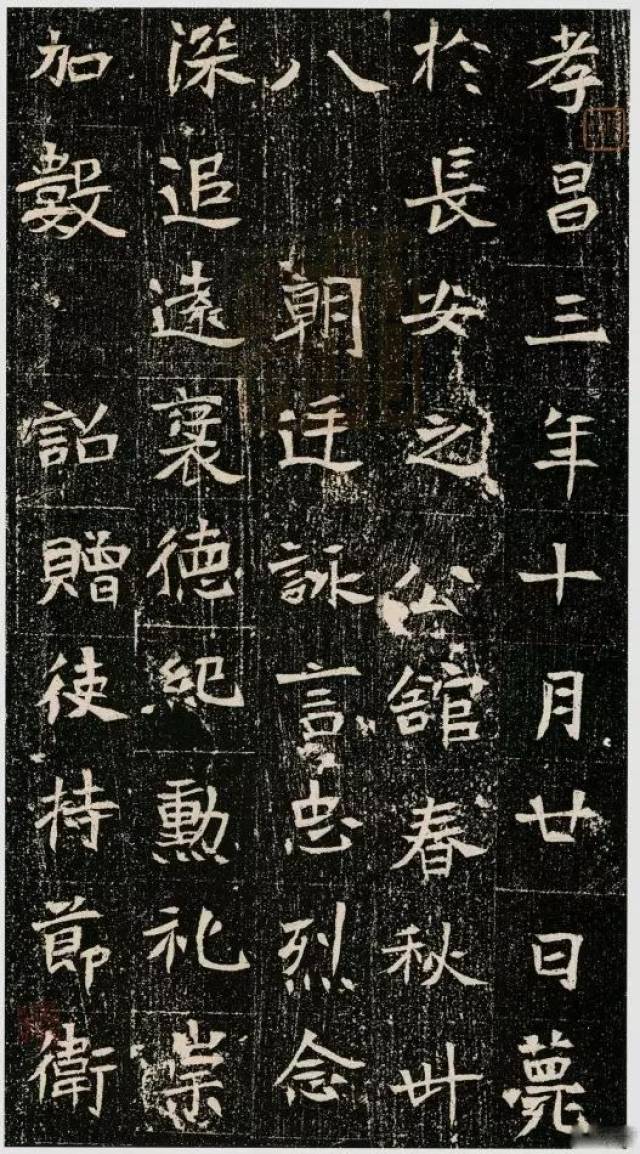 孝昌三年十月廿日薨
於長安之公舘春秋卅
八 朝廷詠言忠烈念
深追遠襃德紀勳礼崇
加數 詔贈使持節衛